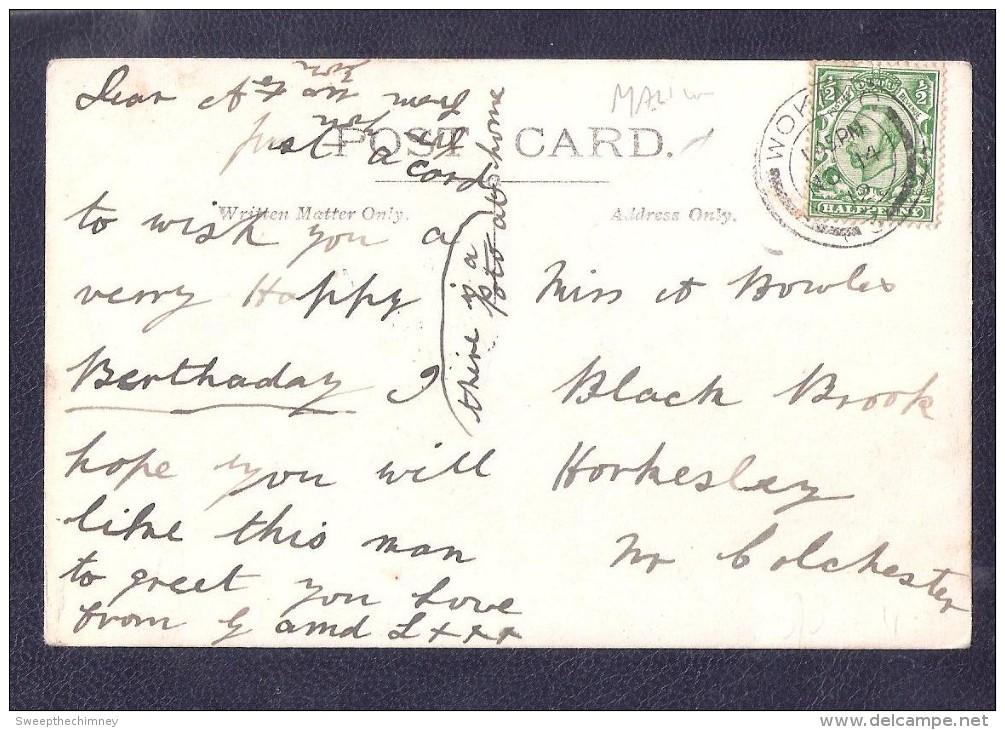 Dear
POST CARD.
Just a card
Written Matter Only.
Address Only.
to wish you a
verry Happy
Berthaday I
hope you will
like this man
to greet you Love
from G and L x x x
there is a
Poto at home
Miss A Bowles
Black Brook
Horkesley
Nr Colchester
WOK
PM
14
1/2
1/2
HALFPENNY
Sweepthechimney
www.delcampe.net